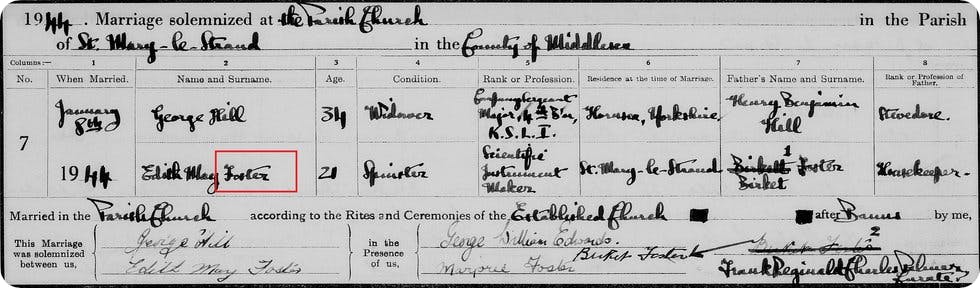 1944. Marriage solemnized at the Parish Church in the Parish
of St. Mary-le-Strand in the County of Middlesex
Columns:— 1 2 3 4 5 6 7 8
No. When Married. Name and Surname. Age. Condition. Rank or Profession. Residence at the time of Marriage. Father's Name and Surname. Rank or Profession of Father.
7
January 8th George Hill 34 Widower Company Sergeant Major, 4th B'n, K.S.L.I. Hornsea, Yorkshire. Henry Benjamin Hill Stevedore.
1944 Edith May Foster 21 Spinster Scientific Instrument Maker St. Mary-le-Strand Birkett 1 Foster Birket Housekeeper-
Married in the Parish Church according to the Rites and Ceremonies of the Established Church after Banns by me,
This Marriage was solemnized between us, George Hill in the Presence of us, George William Edwards. Birket Foster 2
Edith May Foster Marjorie Foster Birket Foster Frank Reginald Charles Palmer Curate.